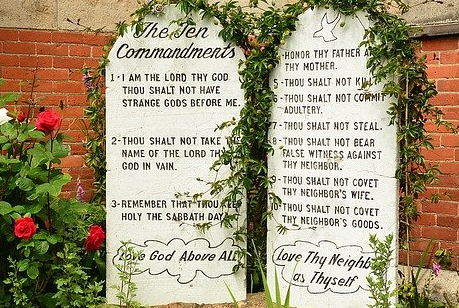 The Ten
Commandments
1-I AM THE LORD THY GOD
THOU SHALT NOT HAVE
STRANGE GODS BEFORE ME.
2-THOU SHALT NOT TAKE THE
NAME OF THE LORD THY
GOD IN VAIN.
3-REMEMBER THAT THOU KEEP
HOLY THE SABBATH DAY.
Love God Above ALL
-HONOR THY FATHER AND
THY MOTHER.
5-THOU SHALT NOT KILL
6-THOU SHALT NOT COMMIT
ADULTERY.
7-THOU SHALT NOT STEAL.
8-THOU SHALT NOT BEAR
FALSE WITNESS AGAINST
THY NEIGHBOR.
9-THOU SHALT NOT COVET
THY NEIGHBOR'S WIFE.
10-THOU SHALT NOT COVET
THY NEIGHBOR'S GOODS.
Love Thy Neighbor
as Thyself